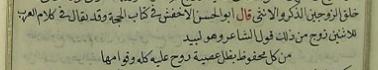 خلق الزوجين الذكر والانثى قال ابو الحسن الاخفش فى كتاب الحجة وقد يقال فى كلام العرب
للاثنين زوج من ذلك قول الشاعر وهو لبيد
من كل محفوظ يظل عصيه زوج عليه كلة وقرامها